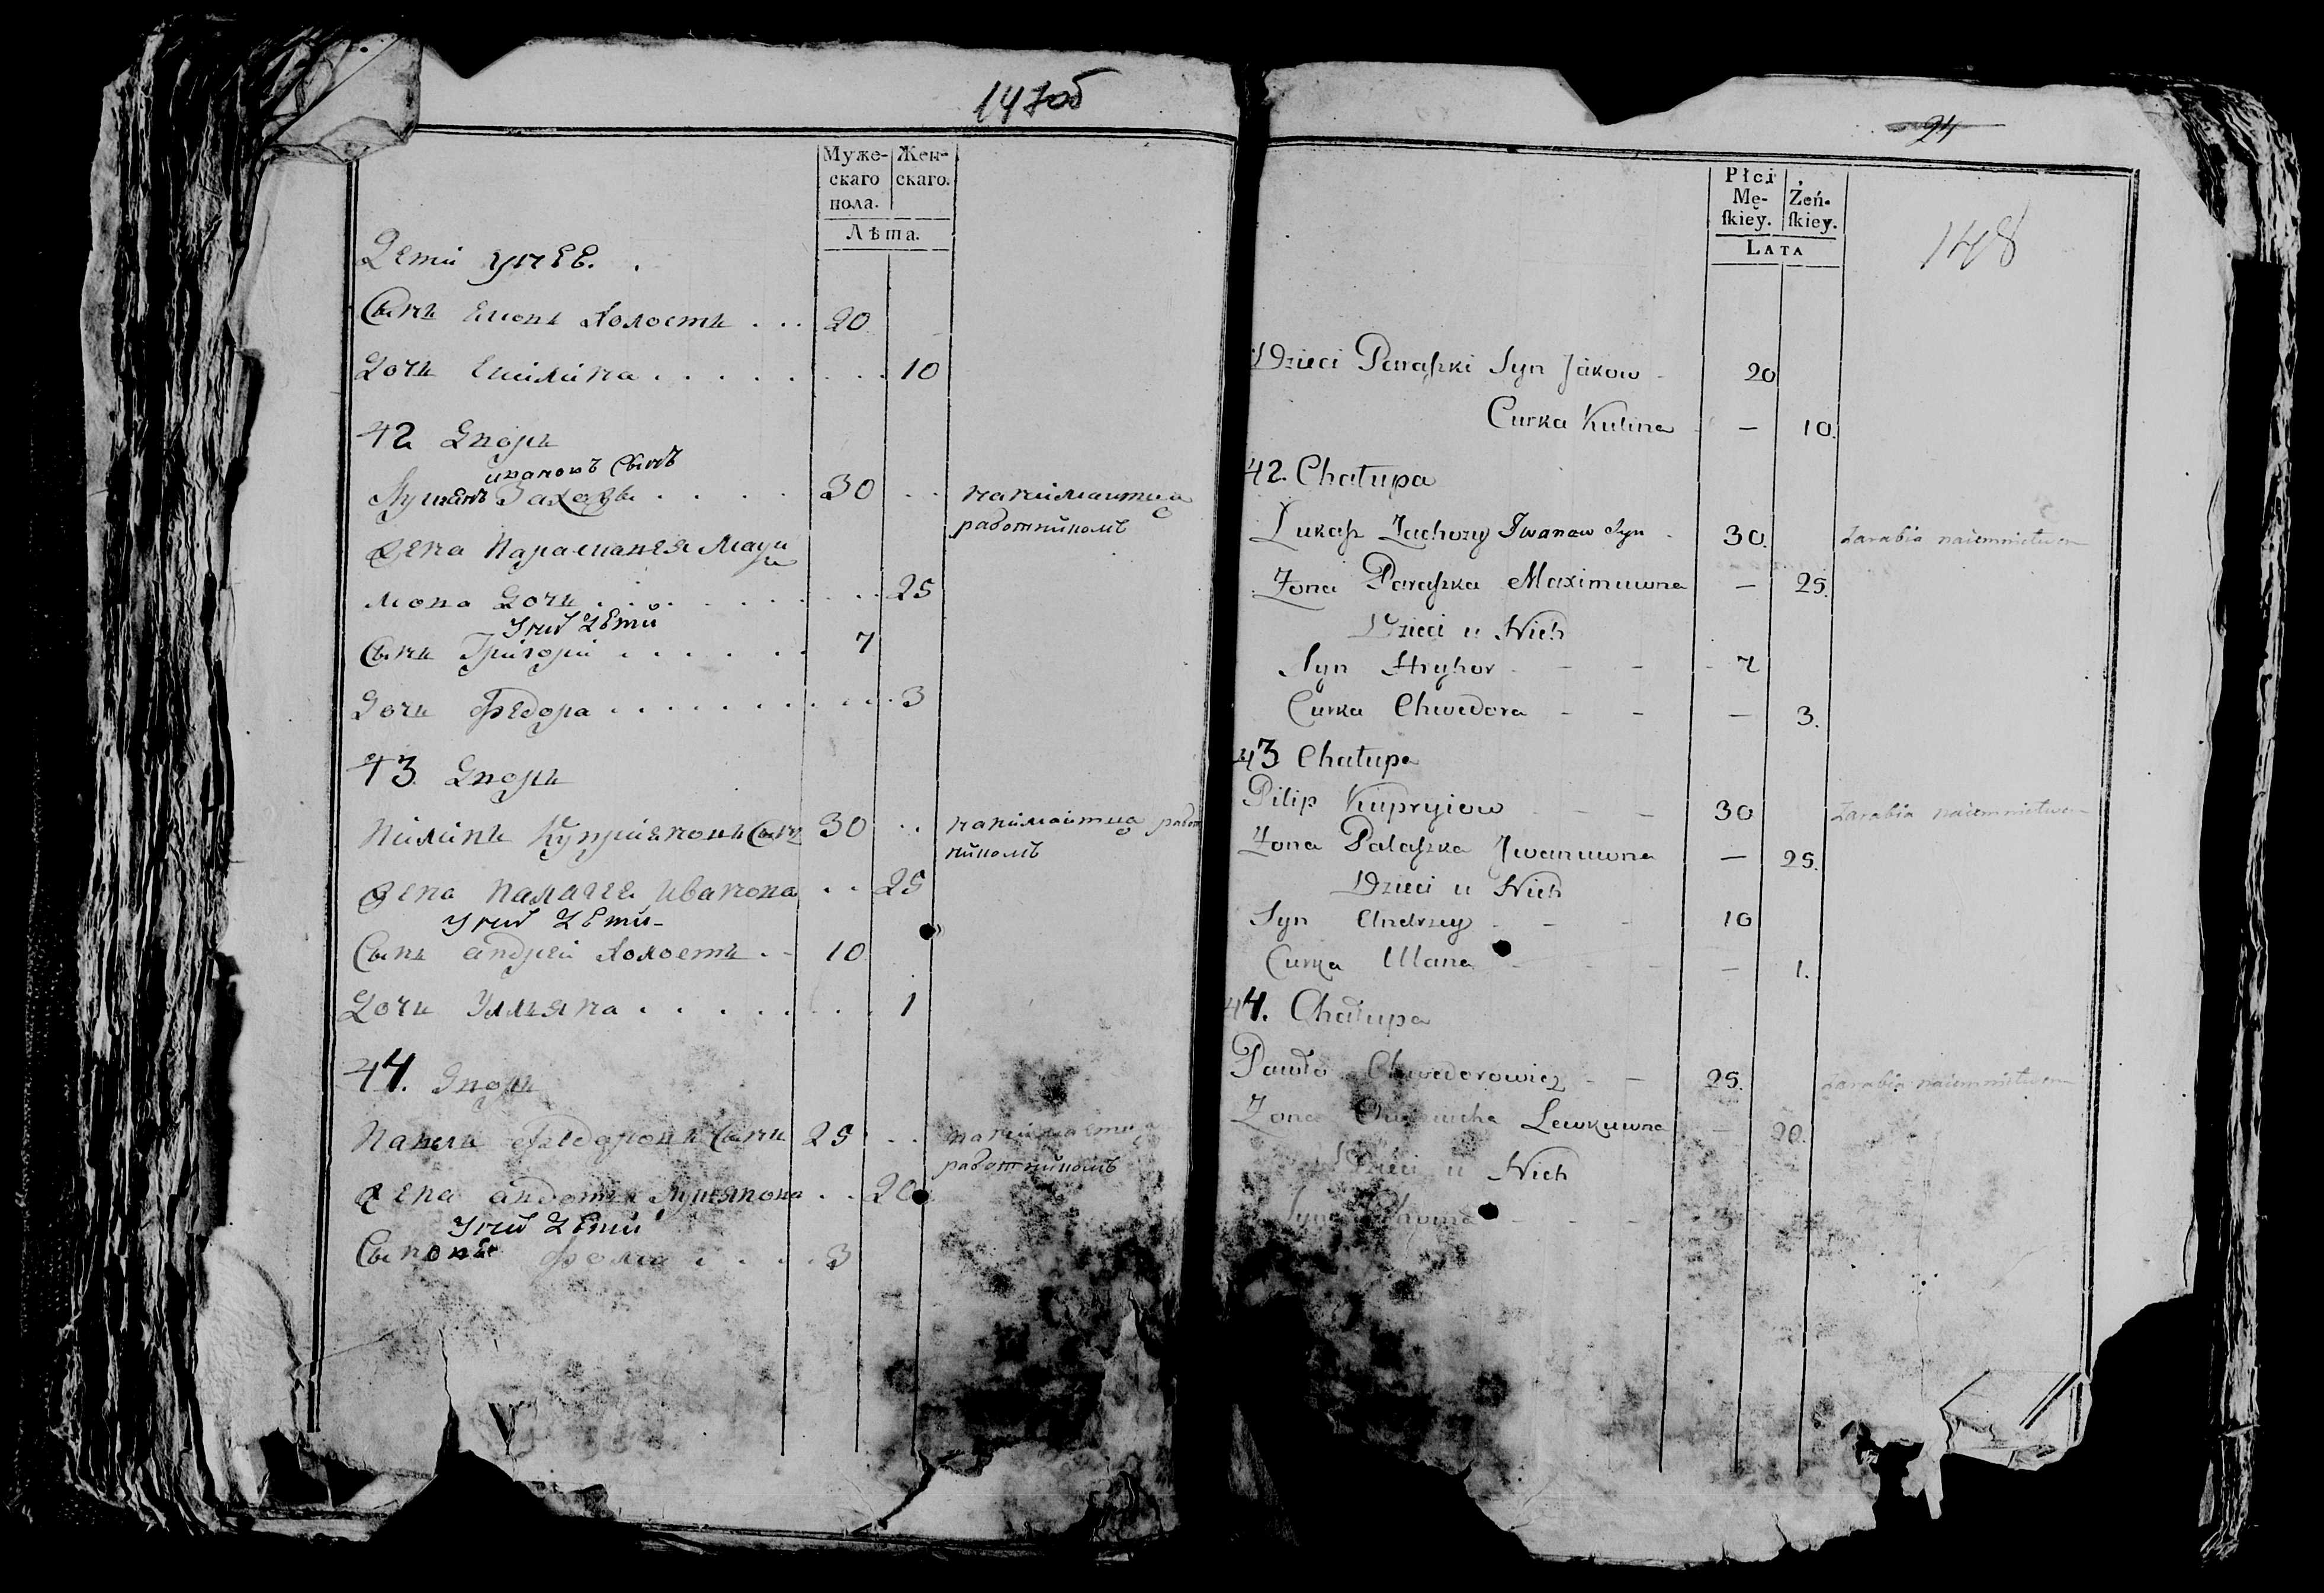 147об
Муже-
скаго
пола.
Жен-
скаго.
Лѣта.
Дети унеѣ.
Сынъ Холостъ . . . 20
Дочь . . . . . . . . 10
42 Дворъ
ивановъ Сынъ
Лукьянъ . . . . 30 . . нанимаитца
работникомъ
Жена Парасковея Макси
мова Дочь . . . . . . . . 25
Унихъ Дети
Сынъ Григорий . . . . . . 7
Дочь Федора . . . . . . . . . . . 3
43 Дворъ
Пилипъ Куприяновъ Сынъ 30 . . нанимаитца работ
никомъ
Жена Палагея Иванова . . 25
Унихъ Дети
Сынъ андрей Холостъ . - 10
Дочь Ульяна . . . . . . . . 1
44. Дворъ
Павелъ Федоровъ Сынъ 25 . . нанимаетца
работникомъ
Жена авдотья Лукянова . . 20
Унихъ Дети
Сыновъ Фома . . . . 3
24
148
Płci
Mę-
ſkiey.
Żeń-
ſkiey.
LATA
Dzieci Paraszki Syn Jakow - 20
Curka Kulina - — 10.
42. Chałupa
Łukasz Zachozy Iwanow Syn - 30. Zarabia naiemnictwem
Żona Paraszka Maximuwna — 25.
Dzieci u Nich
Syn Hryhor - - - 7
Curka Chwedora - - — 3.
43 Chałupa
Pilip Kupryiow - - - 30 Zarabia naiemnictwem
Żona Pałaszka Iwanuwna — 25.
Dzieci u Nich
Syn Andrzey - - - 10
Curka Ulana - - - — 1.
44. Chałupa
Pawło Chwedorowicz - - 25. Zarabia naiemnictwem
Żona Lewkuwna — 20.
Dzieci u Nich
Syn - - - 3